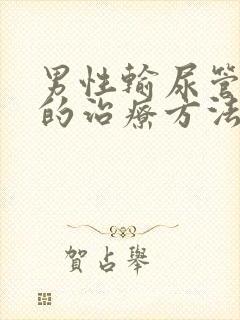 男性输尿管
的治疗方法
贺占举